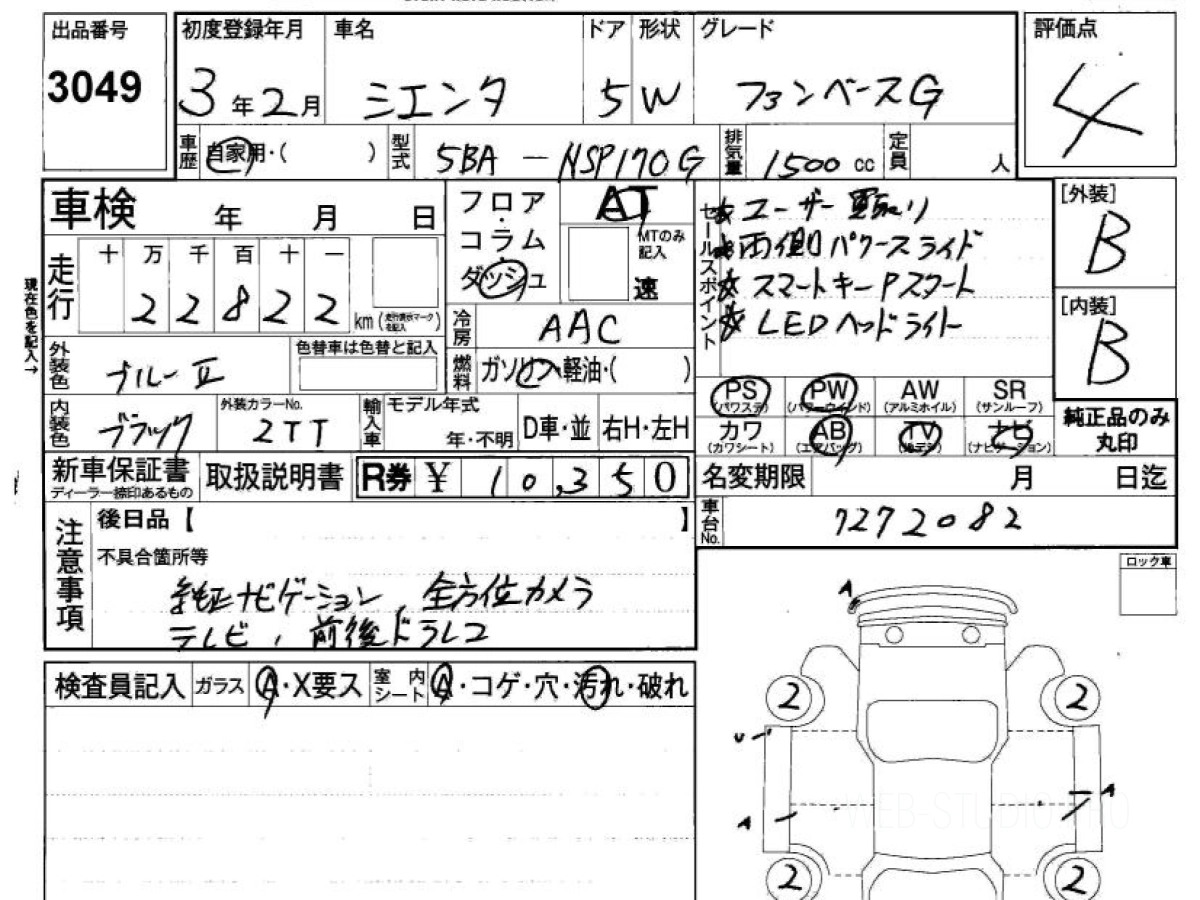 出品番号
3049
初度登録年月
3年2月
車名
シエンタ
ドア
5
形状
W
グレード
ファンベースG
評価点
4
車歴
自家用・( )
型式
5BA-NSP170G
排気量
1500 cc
定員
人
車検 年 月 日
走行
十 万 千 百 十 一
2 2 8 2 2
km(走行表示マークを記入)
現在色を記入→
外装色
ブルーⅡ
色替車は色替と記入
内装色
ブラック
外装カラーNo.
2TT
フロア・コラム・ダッシュ
AT
MTのみ記入
速
冷房
AAC
燃料
ガソリン・軽油・( )
輸入車
モデル年式
年・不明
D車・並
右H・左H
セールスポイント
☆ユーザー買取り
☆両側パワースライド
☆スマートキーPスタート
☆LEDヘッドライト
[外装]
B
[内装]
B
PS
(パワステ)
PW
(パワーウインド)
AW
(アルミホイル)
SR
(サンルーフ)
カワ
(カワシート)
AB
(エアバッグ)
TV
(地デジ)
ナビ
(ナビゲーション)
純正品のみ
丸印
新車保証書
ディーラー捺印あるもの
取扱説明書
R券 ¥ 10,350
名変期限 月 日迄
車台No.
7272082
注意事項
後日品【 】
不具合箇所等
純正ナビゲーション、全方位カメラ
テレビ、前後ドラレコ
ロック車
検査員記入
ガラス
A・X要ス
室内シート
A・コゲ・穴・汚れ・破れ
A
2
2
U
A
A
2
2
WEB-STUDIO PRO